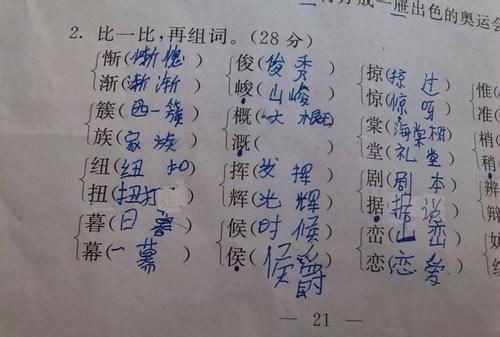 出色的奥运会
2. 比一比，再组词。(28 分)
惭(惭愧) 俊(俊秀) 掠(掠过) 惟(
渐(渐渐) 峻(山峻) 惊(惊呀) 准(
簇(一簇) 概(大概) 棠(海棠树) 梢(
族(家族) 溉( ) 堂(礼堂) 稍(
纽(纽扣) 挥(发挥) 剧(剧本) 辨
扭(扭打) 辉(光辉) 据(据说) 辩
暮(日暮) 候(时候) 峦(山峦)
幕(一幕) 侯(侯爵) 恋(恋爱)
— 21 —